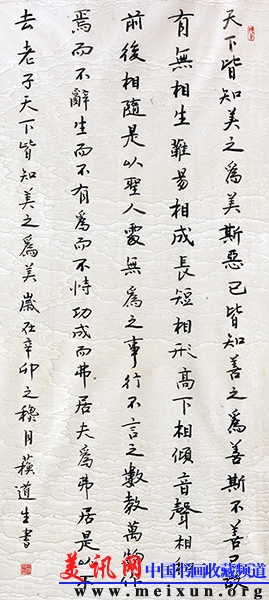 天下皆知美之為美斯惡已皆知善之為善斯不善已故
有無相生難易相成長短相形高下相傾音聲相和
前後相隨是以聖人處無為之事行不言之數教萬物作
焉而不辭生而不有為而不恃功成而弗居夫為弗居是以不
去老子天下皆知美之為美歲在辛卯之月道生書
美讯网 中国书画收藏频道
www.meixun.net